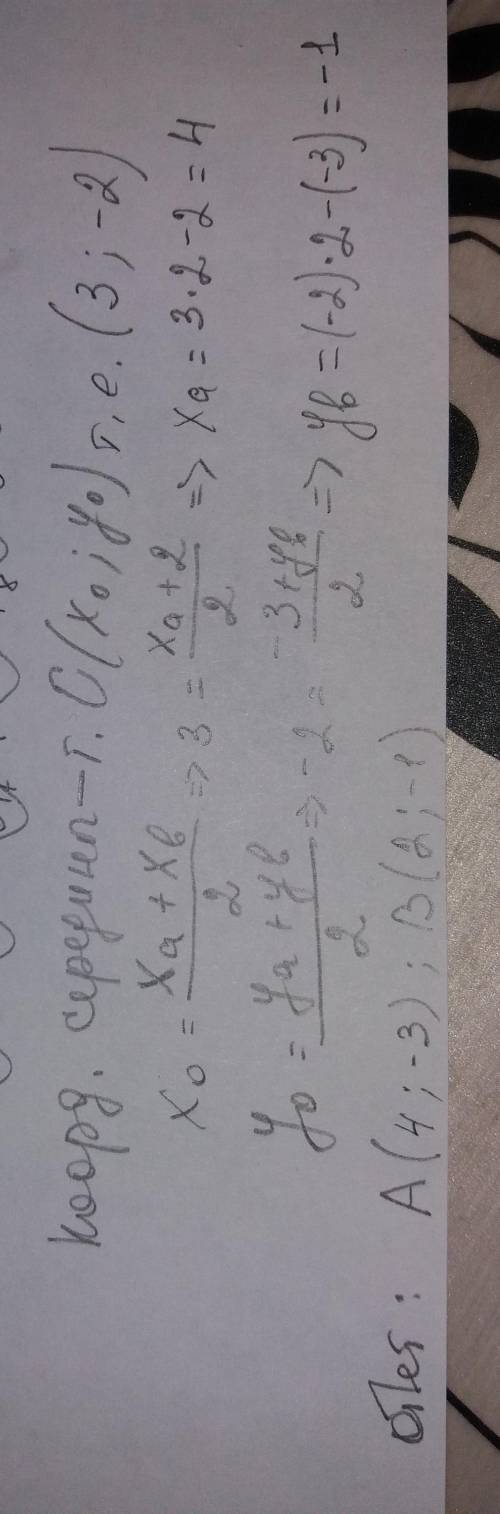 коорд. середины – т. C(x₀; y₀) т.е. (3; -2)
x₀ = (xa + xb)/2 => 3 = (xa + 2)/2 => xa = 3·2-2 = 4
y₀ = (ya + yb)/2 => -2 = (-3 + yb)/2 => yb = (-2)·2-(-3) = -1
Ответ: A(4; -3); B(2; -1)